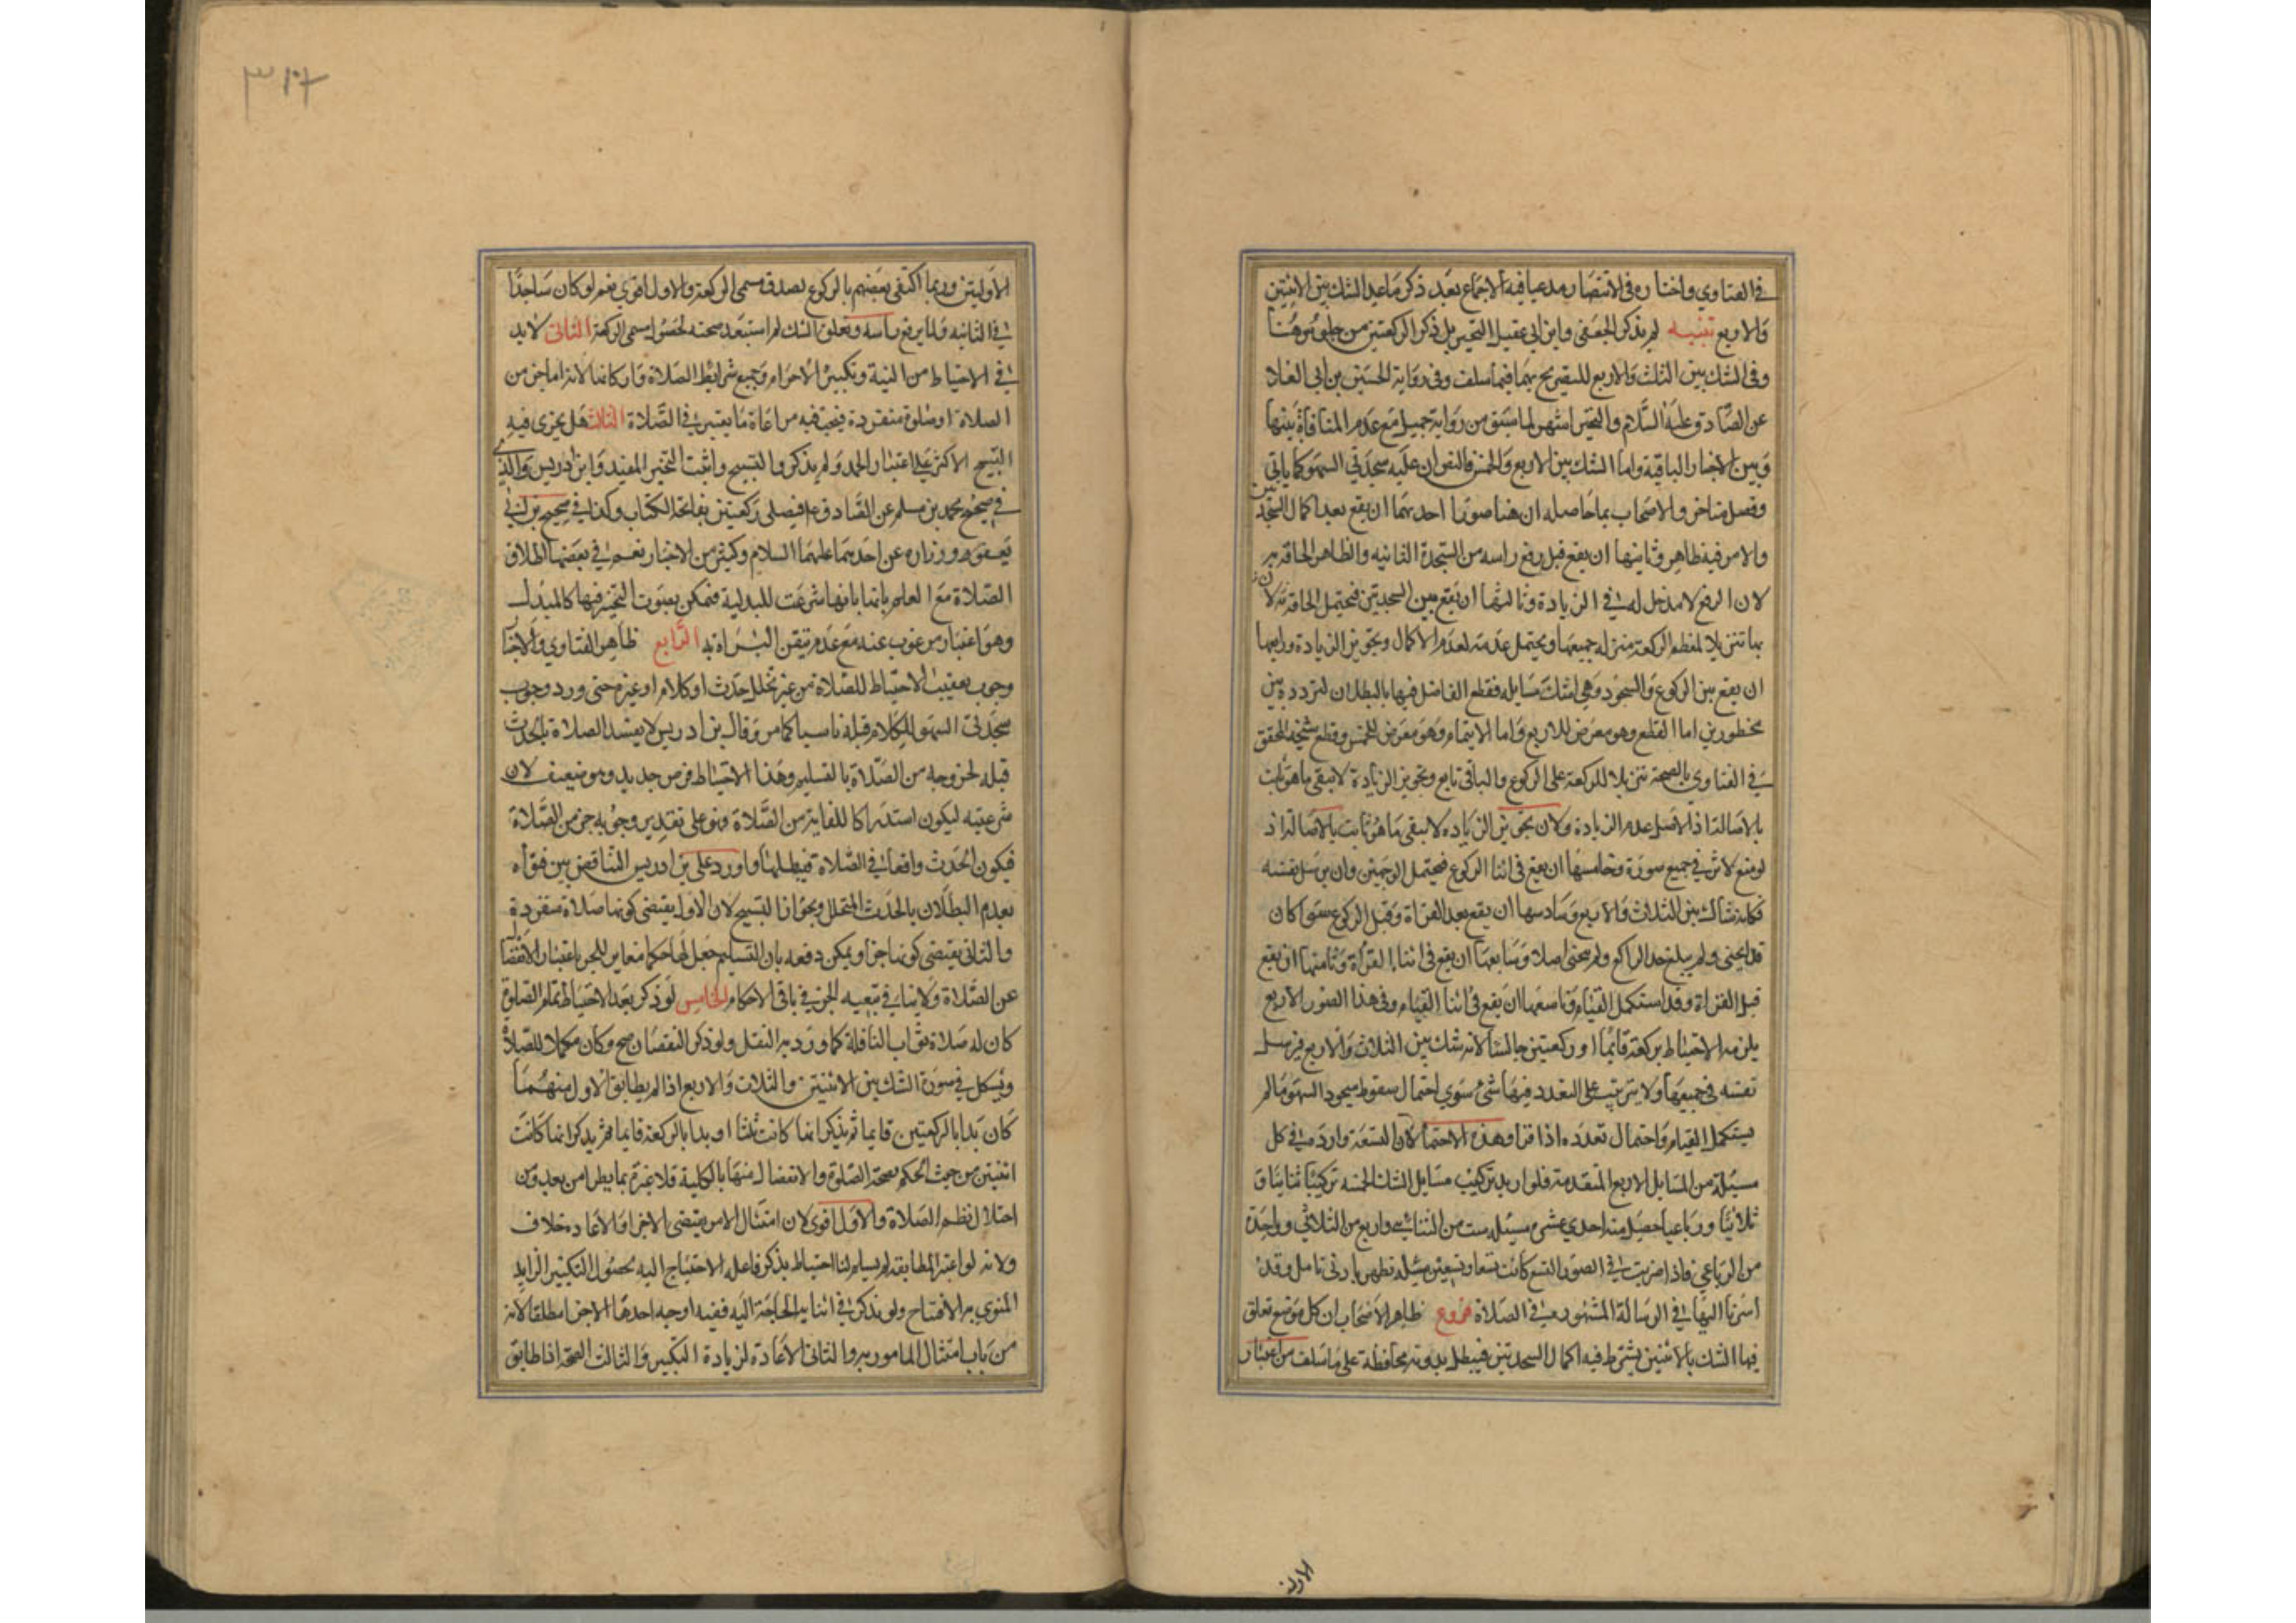 في الفتاوي واختاره في الانتصار مدعيا فيه الاجماع بعد ذكر ما عدا الشك بين الاثنتين
والاربع تنبيه لم يذكر الجعفى وابن ابي عقيل التخير بل ذكرا الركعتين من جلوس هنا
وفي الشك بين الثلث والاربع للتصريح بهما فيما سلف وفي رواية الحسين بن ابي العلا
عن الصادق عليه السلام والتخير اشهر لما سبق من رواية جميل مع عدم المنافاة بينها
وبين الاخبار الباقية واما الشك بين الاربع والخمس فالنص ان عليه سجدتي السهو كما ياتي
وفصل متاخروا الاصحاب بما حاصله ان هنا صورا احديهما ان يقع بعد اكمال السجدتين
والامر فيه ظاهر وثانيها ان يقع قبل رفع راسه من السجدة الثانيه والظاهر الحاقه به
لان الرفع لا مدخل له في الزيادة وثالثها ان يقع بين السجدتين فيحتمل الحاقه بالاول
بها تنزيلا لمعظم الركعة منزله جميعها ويحتمل عدمه لعدم الاكمال وتجويز الزيادة ورابعها
ان يقع بين الركوع والسجود وهي اشكل مسايله فقطع الفاضل فيها بالبطلان لتردده بين
محظورين اما القطع وهو معرض للاربع واما الاتمام وهو معرض للخمس وقطع شيخه المحقق
في الفتاوي بالصحة تنزيلا للركعة على الركوع والباقي تابع وتجويز الزيادة لا ينفي ما هو ثابت
بالاصالة اذ الاصل عدم الزيادة ولان تجويز الزياده لا ينفي ما هو ثابت بالاصالة اذ
لو منع لاثر في جميع صورة وخامسها ان يقع في اثنا الركوع فيحتمل الوجهين وان يرسل نفسه
فكانه شاك بين الثلاث والاربع وسادسها ان يقع بعد القراة وقبل الركوع سوا كان
قد انحنى ولم يبلغ حد الراكع ولم ينحني اصلا وسابعها ان يقع في اثنا القراة وثامنها ان يقع
قبل القراة وقد استكمل القيام وتاسعها ان يقع في اثنا القيام وفي هذا الصور الاربع
يلزمه الاحتياط بركعة قائما او ركعتين جالسا لانه شك بين الثلاث والاربع فيرسل
نفسه في جميعها ولا يترتب على التعدد فيها شئ سوي احتمال سقوط سجود السهو ما لم
يستكمل القيام واحتمال تعدده اذا قرا وهذه الاحتمالات التسعة واردة في كل
مسئلة من المسايل الاربع المتقدمة فلو اريد تركيب مسايل الشك الخمسه تركيبا ثنائيا و
ثلاثيا ورباعيا حصل منه احدي عشر مسئله ست من الثنائي واربع من الثلاثي وواحدة
من الرباعي فاذا ضربت في الصور التسع كانت تسعا وتسعين مسئله تظهر بادنى تامل وقد
اشرنا اليها في الرسالة المشهورة في الصلاة فروع ظاهر الاصحاب ان كل موضع تعلق
فيها الشك بالاثنتين يشترط فيه اكمال السجدتين فيبطل بدونه محافظة على ما سلف من اعتبار
الاوليتين
الاوليتين وربما اكتفى بعضهم بالركوع لصدق مسمى الركعة والاول اقوى نعم لو كان ساجدا
في الثانيه ولما يرفع راسه وتعلق الشك لم استبعد صحته لحصول مسمى الركعة الثاني لابد
في الاحتياط من النية وتكبيرة الاحرام وجميع شرايط الصلاة واركانها لانه اما جزء من
الصلاة او صلوة منفردة فيجب فيه مراعاة ما يعتبر في الصلاة الثالث هل يجزى فيه
التسبيح الاكثر على اعتبار الحمد ولم يذكروا التسبيح واثبت التخير المفيد وابن ادريس والذي
في صحيح محمد بن مسلم عن الصادق ع فيصلى ركعتين بفاتحة الكتاب وكذا في صحيح بن ابي
يعفور وزراره عن احدهما عليهما السلام وكثير من الاخبار نعم في بعضها اطلاق
الصلاة مع العلم باتيانها شرعت للبدلية فيمكن بعبوت التخير فيها كالمبدل
وهو اعتبار مرغوب عنه مع عدم تيقن البراة به الرابع ظاهر الفتاوي والاخبار
وجوب تعقيب الاحتياط للصلاة من غير تخلل حدث او كلام او غيره حتى ورد وجوب
سجدتي السهو للكلام قبله ناسيا كما مر وقال بن ادريس لا يفسد الصلاة بالحدث
قبله لخروجه من الصلاة بالتسليم وهذا الاحتياط فرض جديد وهو ضعيف لان
شرعيته ليكون استدراكا للفايت من الصلاة فهو على تقدير وجوبه جزء من الصلاة
فيكون الحدث واقعا في الصلاة فيبطلها واورد على بن ادريس التناقض بين فتواه
بعدم البطلان بالحدث المتخلل وبجواز التسبيح لان الاول يقتضى كونها صلاة منفردة
والثاني يقتضى كونها جزا ويمكن دفعه بان التسليم جعل لها حكما مغاير للجزء باعتبار الانفصال
عن الصلاة ولا ينافي تبعيه الجزء في باقي الاحكام الخامس لو ذكر بعد الاحتياط تمام الصلوة
كان له صلاة بثواب النافلة كما ورد به النقل ولو ذكر النقصان صح وكان مكملا للصلاة
ويشكل في صورة الشك بين الاثنتين والثلاث والاربع اذا لم يطابق الاول منهما
كان بدا بالركعتين قايما ثم يذكر انها كانت ثلثا او بدا بالركعة قايما ثم يذكر انها كانت
اثنتين من حيث الحكم بصحة الصلوة والانفصال منها بالكلية فلا عبرة بما يطرا من بعد ومن
اختلال نظم الصلاة والاول اقوى لان امتثال الامر يقتضى الاجزا والاعاده خلاف
ولانه لو اعتبر المطابقة لم يسلم لنا احتياط يذكر فاعله الاحتياج اليه لحصول التكبير الزايد
المنوى به الافتتاح ولو تذكر في اثنايه الحاجة اليه ففيه اوجه احدها الاجزا مطلقا لانه
من باب امتثال المامور به والثاني الاعادة لزيادة التكبير والثالث الصحة اذا طابق